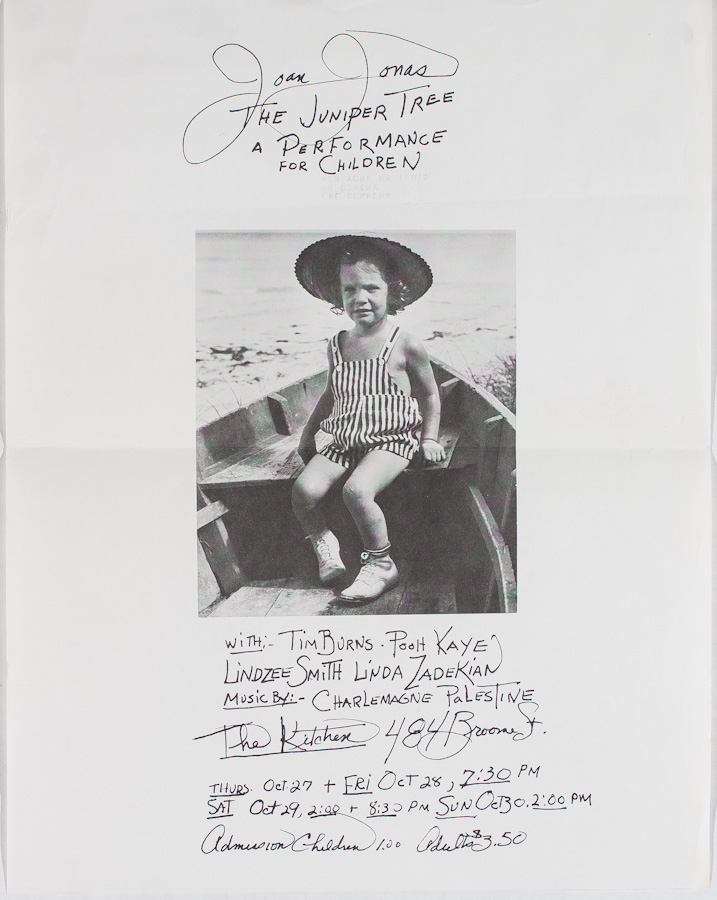 Joan Jonas
THE JUNIPER TREE
A PERFORMANCE
FOR CHILDREN
WITH:- TIM BURNS . POOH KAYE
LINDZEE SMITH LINDA ZADEKIAN
MUSIC BY:- CHARLEMAGNE PALESTINE
The Kitchen 484 Broome St.
THURS. Oct 27 + FRI Oct 28, 7:30 PM
SAT Oct 29, 2:00 + 8:30 PM SUN Oct 30. 2:00 PM
Admission Children 1.00 Adults $3.50